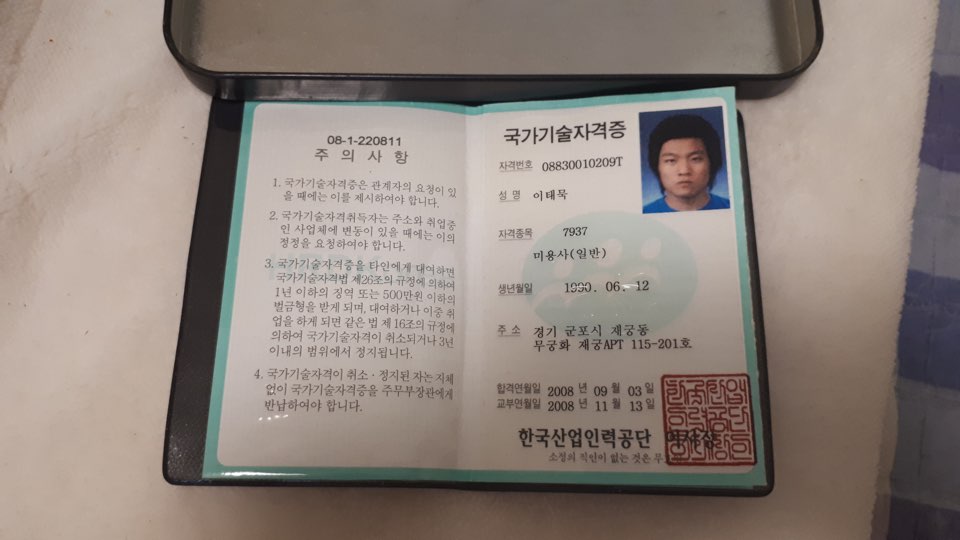 08-1-220811
주 의 사 항
1. 국가기술자격증은 관계자의 요청이 있
을 때에는 이를 제시하여야 합니다.
2. 국가기술자격취득자는 주소와 취업중
인 사업체에 변동이 있을 때에는 이의
정정을 요청하여야 합니다.
3. 국가기술자격증을 타인에게 대여하면
국가기술자격법 제26조의 규정에 의하여
1년 이하의 징역 또는 500만원 이하의
벌금형을 받게 되며, 대여하거나 이중 취
업을 하게 되면 같은 법 제16조의 규정에
의하여 국가기술자격이 취소되거나 3년
이내의 범위에서 정지됩니다.
4. 국가기술자격이 취소·정지된 자는 지체
없이 국가기술자격증을 주무부장관에게
반납하여야 합니다.
국가기술자격증
자격번호 08830010209T
성 명 이태묵
자격종목 7937
미용사(일반)
생년월일 1990. 06. 12
주 소 경기 군포시 재궁동
무궁화 재궁APT 115-201호
합격연월일 2008 년 09 월 03 일
교부연월일 2008 년 11 월 13 일
한국산업인력공단
소정의 직인이 없는 것은